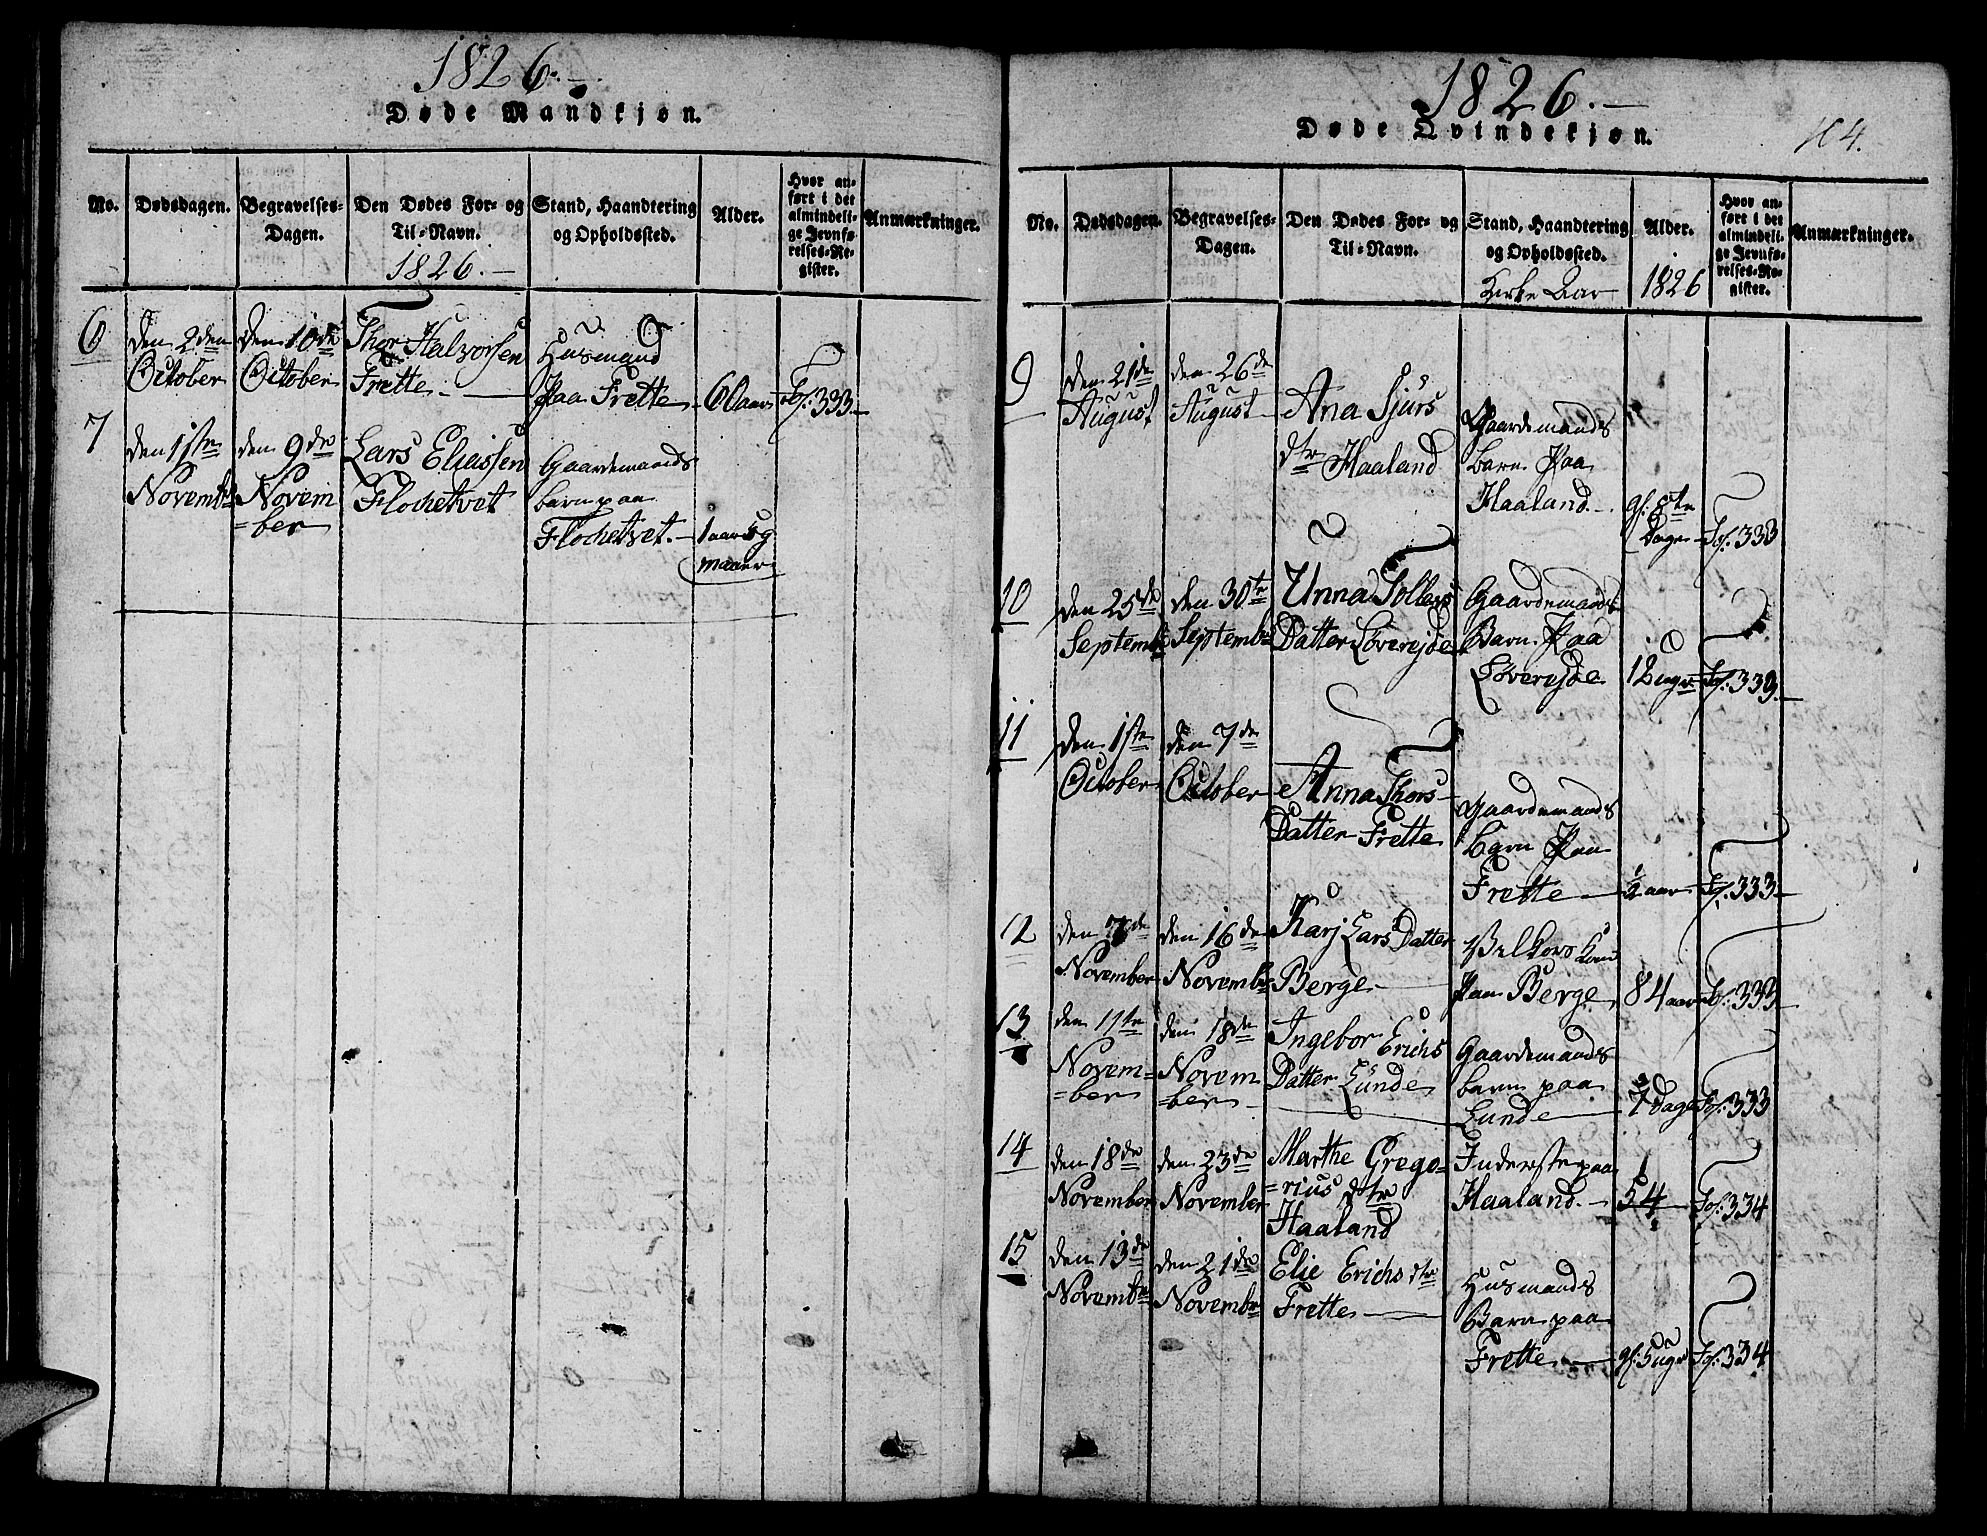 1826.–
Døde Mandkjøn.
No.
Dødsdagen.
Begravelses-
Dagen.
Den Dødes For- og
Til-Navn.
1826.–
Stand, Haandtering
og Opholdssted.
Alder.
Hvor an-
ført i det
almindeli-
ge Jevnfø-
relses-Re-
gister.
Anmærkninger.
6
den 2den
October
den 10de
October
Thor Halvorsen
Frette.
Husmand
paa Frette
60 aar
333
7
den 1ste
Novembr
den 9de
Novem
=ber
Lars Eliassen
Flochetvet
Gaardemands
barn paa
Flochetvet.
1 aar og
1826.–
Døde Qvindekjøn.
104.
No.
Dødsdagen.
Begravelses-
Dagen.
Den Dødes For- og
Til-Navn.
Stand, Haandtering
og Opholdssted.
Kirke Aar
Alder.
1826
Hvor an-
ført i det
almindeli-
ge Jevnfø-
relses-Re-
gister.
Anmærkninger.
9
den 21de
August
den 26de
August
Ana Sjurs
dtr Haaland
Gaardemands
barn paa
Haaland.
8te
Dage
Fol. 333
10
den 25de
Septembr
den 30te
Septembr
Unna Tollevs
Datter Løverejde
Gaardemands
Barn paa
Løverejde
12 uger
Fol. 333.
11
den 1ste
October
den 7de
October
Anna Thors
Datter Frette
Gaardemands
barn paa
Frette
1/2 aar
Fol. 333
12
den 7de
November
den 16de
Novembr
Karj Lars Datter
Berge
Vilkors Kone
paa Berge
84 aar
Fol. 333
13
den 11te
Novem=
=ber
den 18de
Novem
=ber
Ingebor Erichs
Datter Lunde
Gaardemands
barn paa
Lunde
7 Dage
Fol. 333
14
den 18de
November
den 23de
November
Marthe Grego=
=rius dtr
Haaland
Inderste paa
Haaland.
54
Fol. 334
15
den 13de
Novembr
den 21de
Novembr
Elie Erichs dtr
Frette
Husmands
Barn paa
Frette
5 uger
Fol. 334